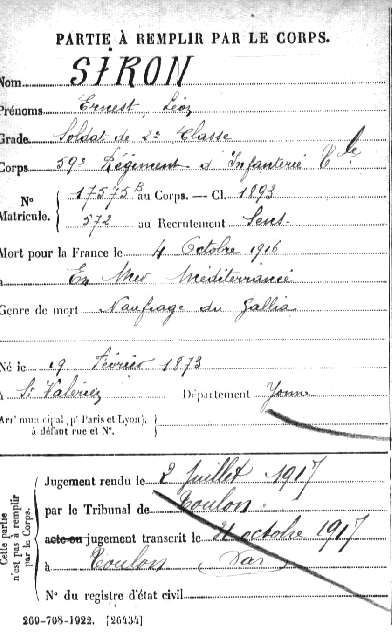 PARTIE À REMPLIR PAR LE CORPS.
Nom SIRON
Prénoms Ernest, Léon
Grade Soldat de 2e Classe
Corps 59e Régiment d'Infanterie Cle
N° Matricule. { 17575B au Corps. — Cl. 1893
572 au Recrutement Sens
Mort pour la France le 4 Octobre 1916
à En Mer Méditerranée
Genre de mort Naufrage du Gallia
Né le 19 Février 1873
à St Valérien Département Yonne
Arr' municipal (p' Paris et Lyon),
à défaut rue et N°.
Cette partie
n'est pas à remplir
par le Corps.
Jugement rendu le 2 Juillet 1917
par le Tribunal de Toulon
acte ou jugement transcrit le 31 octobre 1917
à Toulon (Var)
N° du registre d'état civil
260-708-1922. [26434]